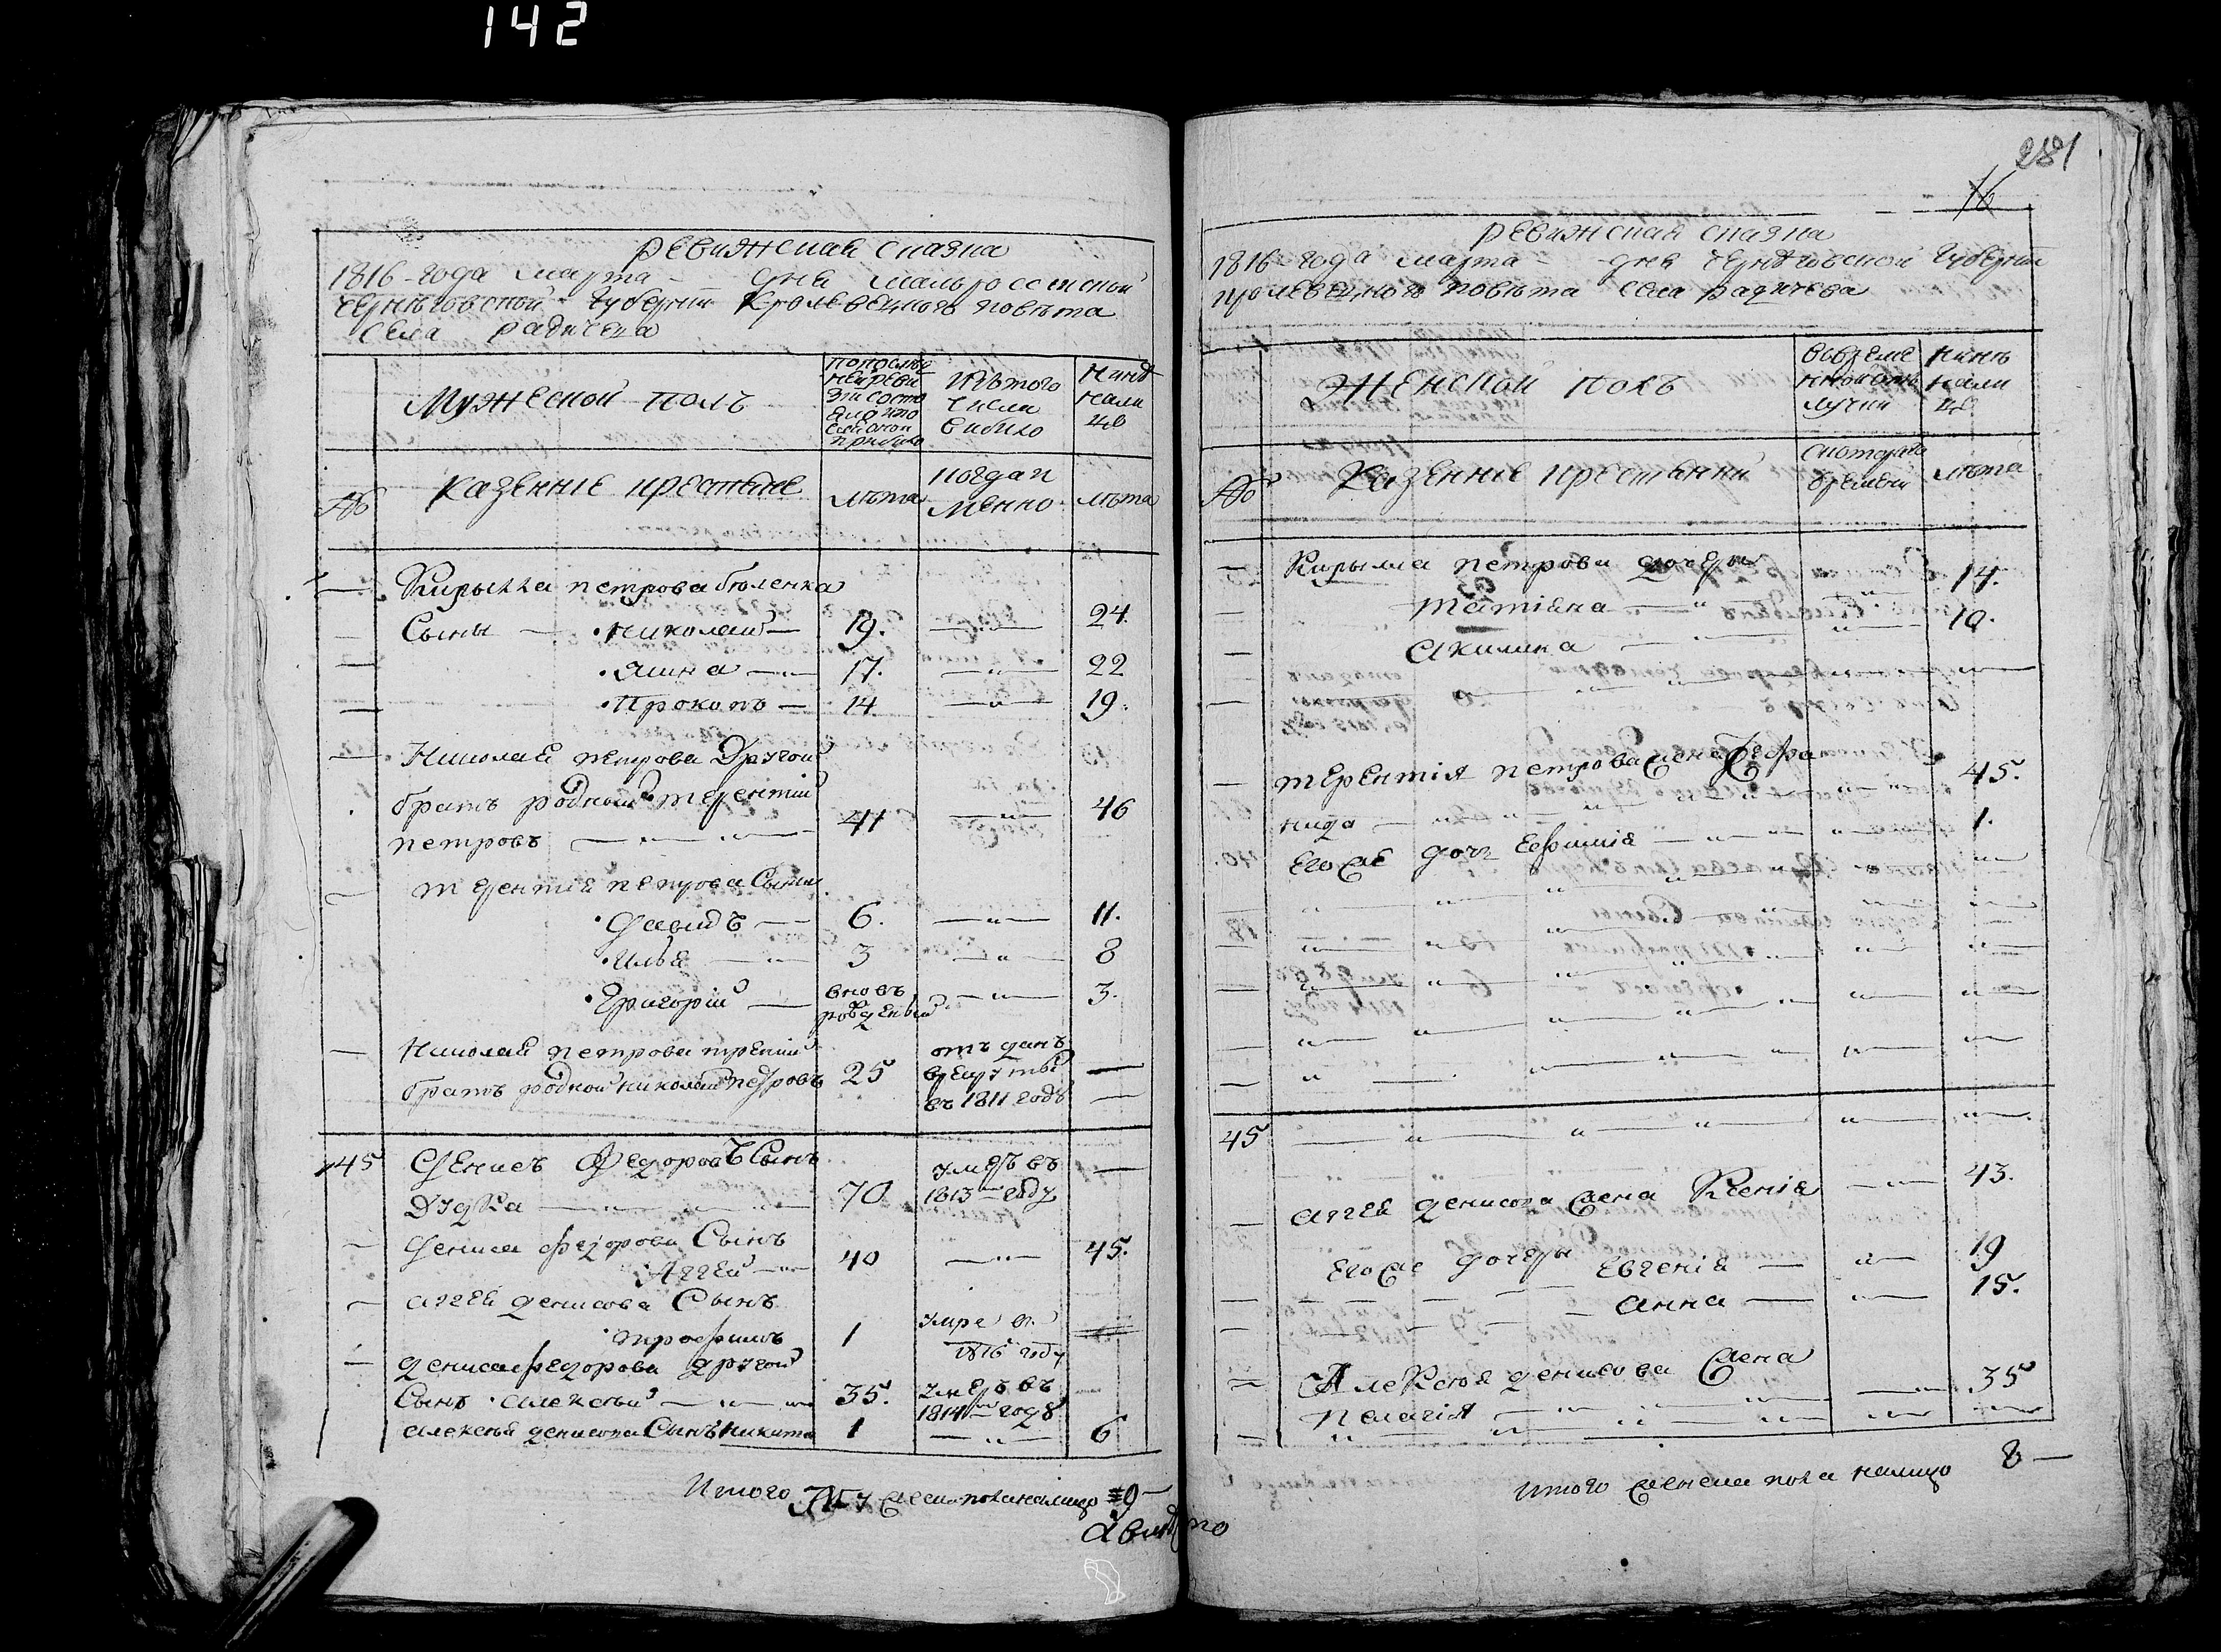 142
ревижская сказка
1816 года марта дня малороссийской
черниговской губернии кролевецкого повета
села радичева
Мужеской полъ
По последней ревизии состояло и после оной прибыло
Изъ того числа выбыло
Ныне на лицо
№
казенние крестьяне
лета
когда именно
лета
Кирылла петрова
Сыны Николай 19. 24.
Яшка 17. 22
Прокопъ 14 19.
Николая петрова Другой
братъ родний терентий
петровъ 41 46
терентия петрова Сыны
Давидъ 6. 11.
Илья 3 8
Григорий вновь рожденый 3.
Николая петрова третий
братъ родной николай петровъ 25 отъданъ в рекруты въ 1811 годе
45 Денисъ Федоровъ Сынъ
Дудка 70 умеръ въ 1813 году
Дениса федорова Сынъ
Аггей 40 45.
аггея денисова Сынъ
трофимъ 1 умре в 1816 году
дениса федорова другой
Сынъ алексей 35. умеръ въ 1814 годе
алексея денисова Сынъ Никита 1 6
Итого мужеска пола налицо 9
281
16
ревижская сказка
1816 года марта дня черниговской губернии
кролевецкого повета села радичева
Женской полъ
Во временной отлучки
Ныне на лицо
№
Казенние крестьянки
С которого времени
лета
Кирылла петрова дочери
татияна 14.
акилина 10.
терентия петрова жена
45.
его же дочь Ефимия 1.
45
аггея денисова жена Ксения 43.
его же дочери Евгения 19
анна 15.
Алексея денисова жена
пелагия 35
итого женска пола налицо 8